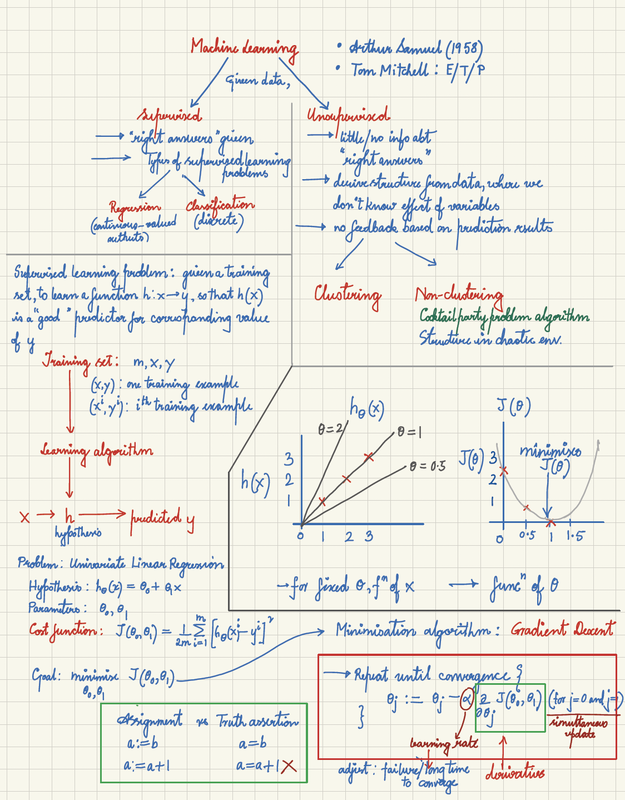 Machine Learning
• Arthur Samuel (1958)
• Tom Mitchell : E/T/P
Given data,
Supervised
→ "right answers" given
→ Types of supervised learning
problems
Regression
(continuous-valued
outputs)
Classification
(discrete)
Unsupervised
→ little/no info abt
"right answers"
→ derive structure from data, where we
don't know effect of variables
→ no feedback based on prediction results
Clustering
Non-clustering
Cocktail party problem algorithm
Structure in chaotic env.
Supervised learning problem: given a training
set, to learn a function h: x→y, so that h(x)
is a "good" predictor for corresponding value
of y
Training set: m, x, y
(x,y) : one training example
(xⁱ, yⁱ) : iᵗʰ training example
Learning algorithm
x → h → predicted y
hypothesis
h_θ(x)
θ=2
θ=1
θ=0.5
h(x)
3
2
1
0 1 2 3
J(θ)
J(θ)
3
2
1
minimises
J(θ)
0 0.5 1 1.5
→ for fixed θ, fⁿ of x ⟷ funcⁿ of θ
Problem: Univariate Linear Regression
Hypothesis: h_θ(x) = θ₀ + θ₁x
Parameters: θ₀, θ₁
Cost function: J(θ₀,θ₁) = 1/2m Σᵢ₌₁ᵐ [h_θ(xⁱ) − yⁱ]²
Goal: minimise J(θ₀,θ₁)
θ₀,θ₁
Minimisation algorithm: Gradient Descent
→ Repeat until convergence {
θⱼ := θⱼ − α ∂/∂θⱼ J(θ₀,θ₁) (for j=0 and j=1)
}
simultaneous
update
learning rate
adjust : failure/long time
to converge
derivatives
Assignment vs Truth assertion
a:=b a=b
a:=a+1 a=a+1 X